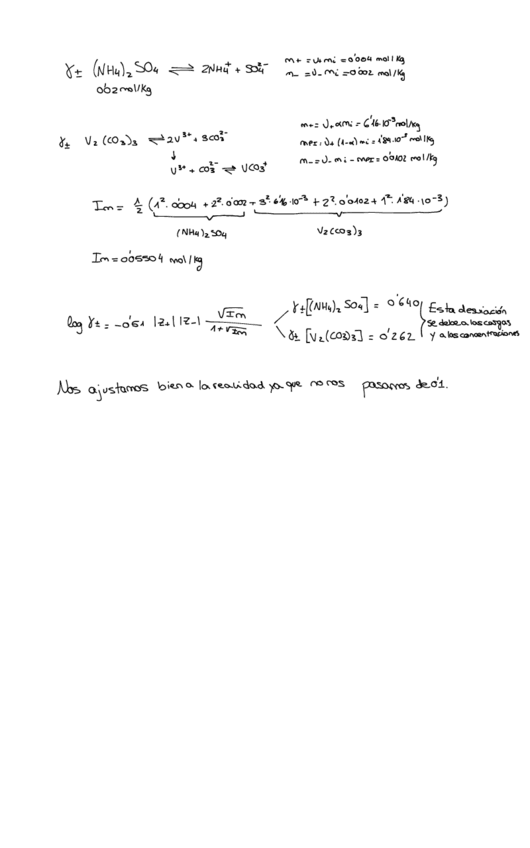 γ± (NH4)2 SO4 ⇌ 2NH4⁺ + SO4²⁻ m+ = ν+ mi = 0'004 mol/kg
0'02 mol/kg m- = ν- mi = 0'002 mol/kg
γ± V2(CO3)3 ⇌ 2V³⁺ + 3CO3²⁻ m+ = ν+ α mi = 6'16·10⁻³ mol/kg
↓ mPI = ν+ (1-α) mi = 1'84·10⁻³ mol/kg
V³⁺ + CO3²⁻ ⇌ VCO3⁺ m- = ν- mi - mPI = 0'0102 mol/kg
Im = 1/2 (1²·0'004 + 2²·0'002 + 3²·6'16·10⁻³ + 2²·0'0102 + 1²·1'84·10⁻³)
(NH4)2SO4 V2(CO3)3
Im = 0'05504 mol/kg
log γ± = -0'51 |Z+| |Z-| √Im / 1+√Im γ± [(NH4)2 SO4] = 0'640 Esta desviación
se debe a las cargas
γ± [V2(CO3)3] = 0'262 y a las concentraciones
Nos ajustamos bien a la realidad ya que no nos pasamos de 0'1.